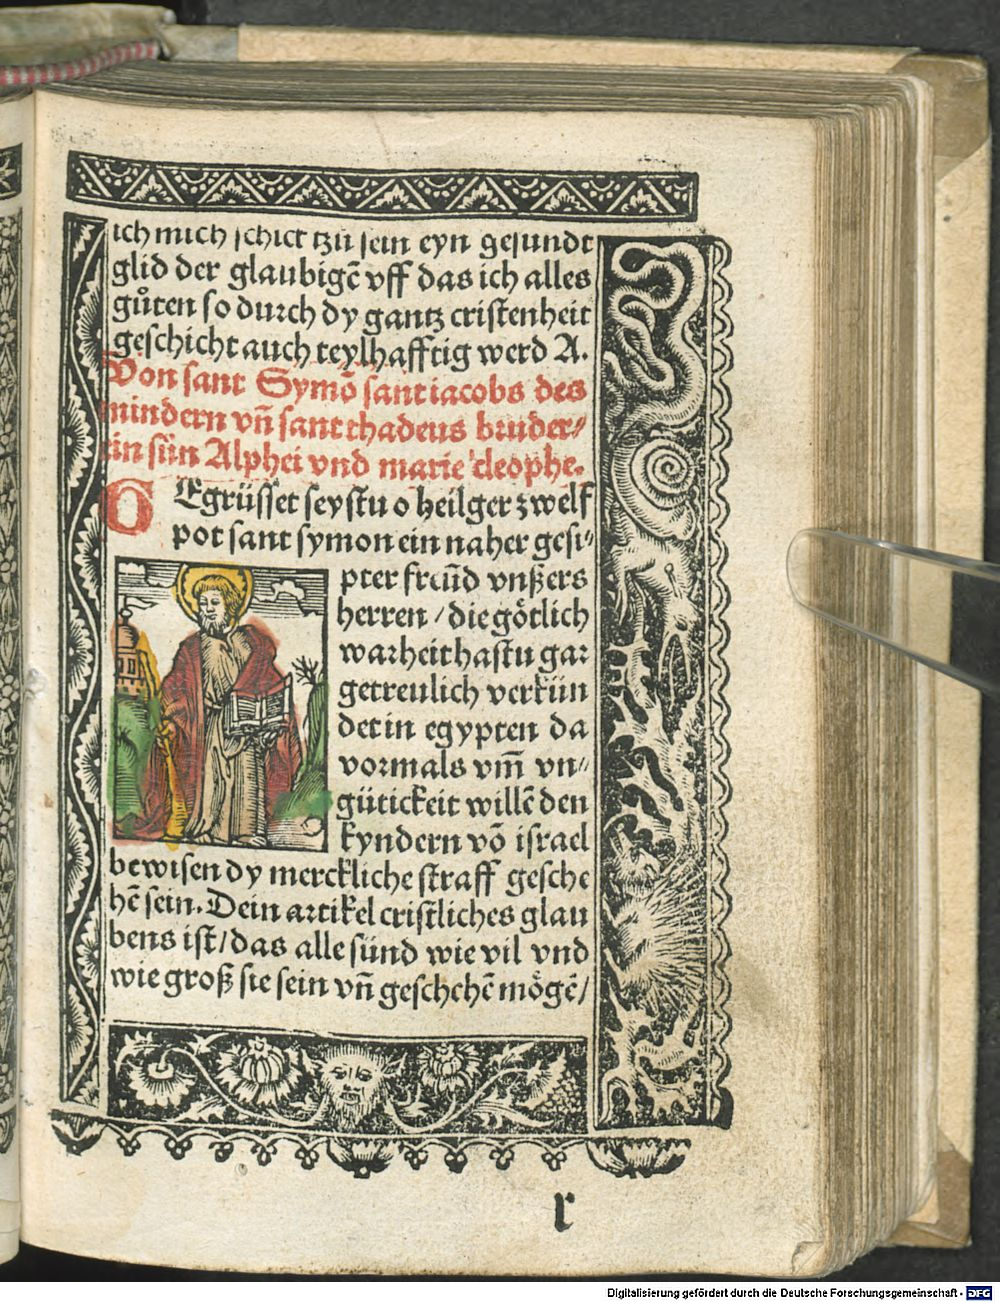 ich mich schict tzů sein eyn gesundt
glid der glaubigē vff das ich alles
gůten so durch dy gantz cristenheit
geschicht auch teylhafftig werd A.
Von sant Symō sant iacobs des
mindern vn̄ sant thadeus bruder⸗
ein sün Alphei vnd marie cleophe.
GEgrüsset seystu o heilger zwelf
pot sant symon ein naher gesi⸗
pter freūd vnßers
herren / die götlich
warheit hastu gar
getreulich verkün
det in egypten da
vormals vm̄ vn⸗
gütickeit willē den
kyndern vō israel
bewisen dy merckliche straff gesche
hē sein. Dein artikel cristliches glau
bens ist / das alle sünd wie vil vnd
wie groß sie sein vn̄ geschehē mögē /
r
Digitalisierung gefördert durch die Deutsche Forschungsgemeinschaft - DFG